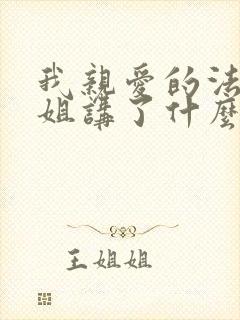 我親愛的法
姐講了什麼
王姐姐